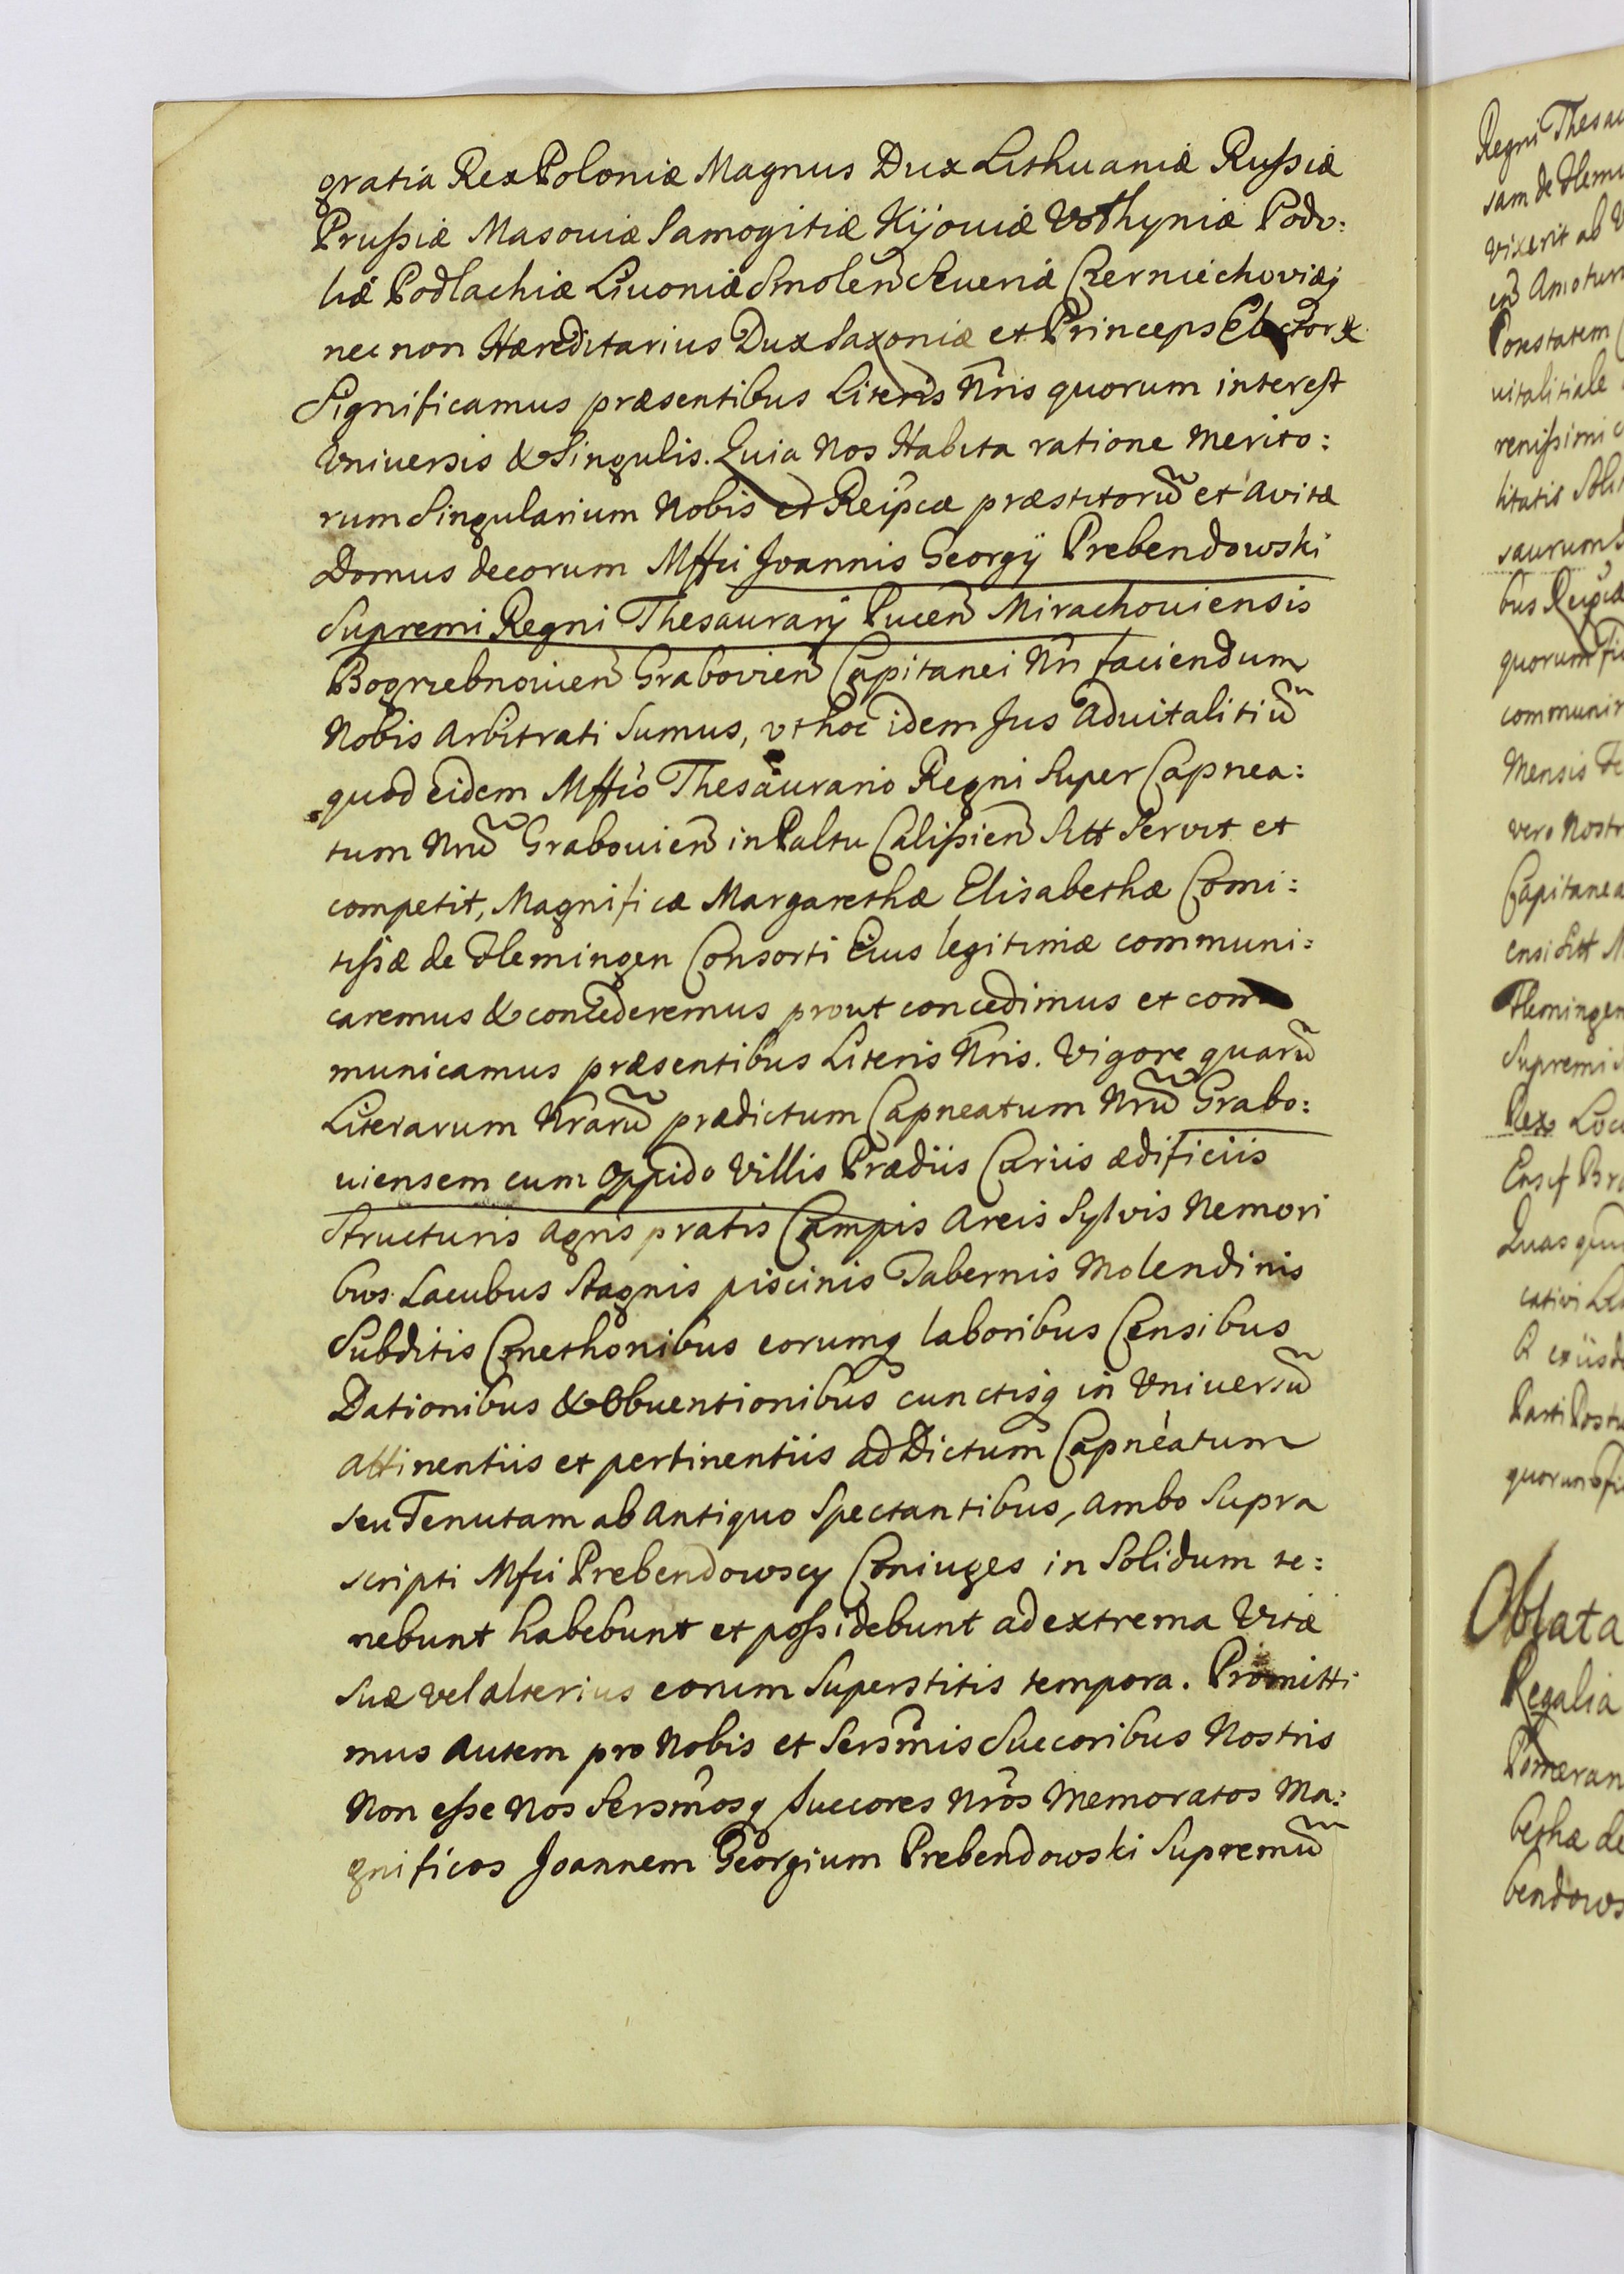 gratia Rex Poloniæ Magnus Dux Lithuaniæ Russiæ
Prussiæ Masouiæ Samogitiæ Kijouiæ Volhyniæ Podo:
liæ Podlachiæ Liuoniæ Smolen Seueriæ Czerniechoviæq
nec non Hæreditarius Dux Saxoniæ et Princeps Elector &
Significamus præsentibus Literis Nris quorum interest
Vniuersis & Singulis. Quia Nos Habita ratione merito:
rum Singularium Nobis et Reipcæ præstitorũ et Avitæ
Domus decorum Mffci Joannis Georgÿ Prebendowski
Supremi Regni Thesaurarÿ Pucen Mirachouiensis
Bogrzebnouien Grabovien Capitanei Nri faciendum
Nobis Arbitrati Sumus, vt hoc idem Jus Aduitalitiũ
quod eidem Mffco Thesaurario Regni Super Capnea:
tum Nrũ Grabouien in Paltu Calissien Sitt Servit et
competit, Magnificæ Margarethæ Elisabethæ Comi:
tissæ de Flemingen Consorti Eius legitimæ communi:
caremus & concederemus prout concedimus et com
municamus præsentibus Literis Nris. Vigore quarũ
Literarum Nrarũ prædictum Capneatum Nrũ Grabo:
uiensem cum Oppido Villis Prædiis Curiis ædificiis
Structuris Agris pratis Campis Areis Sylvis Nemori
bus Lacubus Stagnis piscinis Tabernis Molendinis
Subditis Cmethonibus eorumq laboribus Censibus
Dationibus & Obuentionibus cunctisq in Vniuersũ
Attinentiis et pertinentiis ad Dictum Capneatum
seu Tenutam ab Antiquo Spectantibus, Ambo Supra
scripti Mfci Prebendowscy Coniuges in Solidum te:
nebunt habebunt et possidebunt ad extrema Vitæ
Suæ vel alterius eorum Superstitis tempora. Promitti
mus Autem pro Nobis et Sersmis Succoribus Nostris
Non esse Nos Sersmosq Succores Nros Memoratos Ma:
gnificos Joannem Georgium Prebendowski Supremũ
Regni Thesau
sam de Flemi
vixerit ab V
Amotur
Potestatem
uitalitiale
renissimi
litatis Soli
saurum
bus Reipcæ
quorum fi
communir
Mensis
vero Nostr
Capitanea
ensi Sitt M
Flemingen
Supremi
Rex Loc
Ensif Bra
Quas
cativi
eiusd
Parti Postu
quorum fi
Oblata
Regalia
Pomeran
bethæ de
bendows